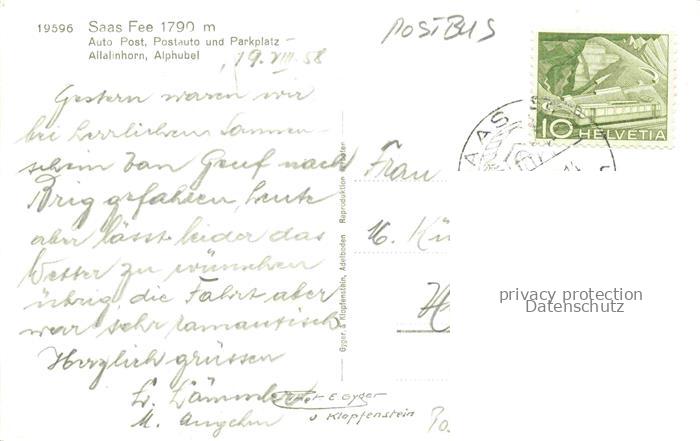 19596 Saas Fee 1790 m
Auto Post, Postauto und Parkplatz
Allalinhorn, Alphubel
POSTBUS
19. VIII. 58
10 HELVETIA
SAAS
Gestern waren wir
bei herrlichem Sonnen-
schein von Genf nach
Brig gefahren, heute
aber lässt leider das
Wetter zu wünschen
übrig, die Fahrt aber
war sehr romantisch.
Herzlich grüssen
M.
Frau
Gyger & Klopfenstein, Adelboden Reproduktion
E Gyger
u Klopfenstein
privacy protection
Datenschutz